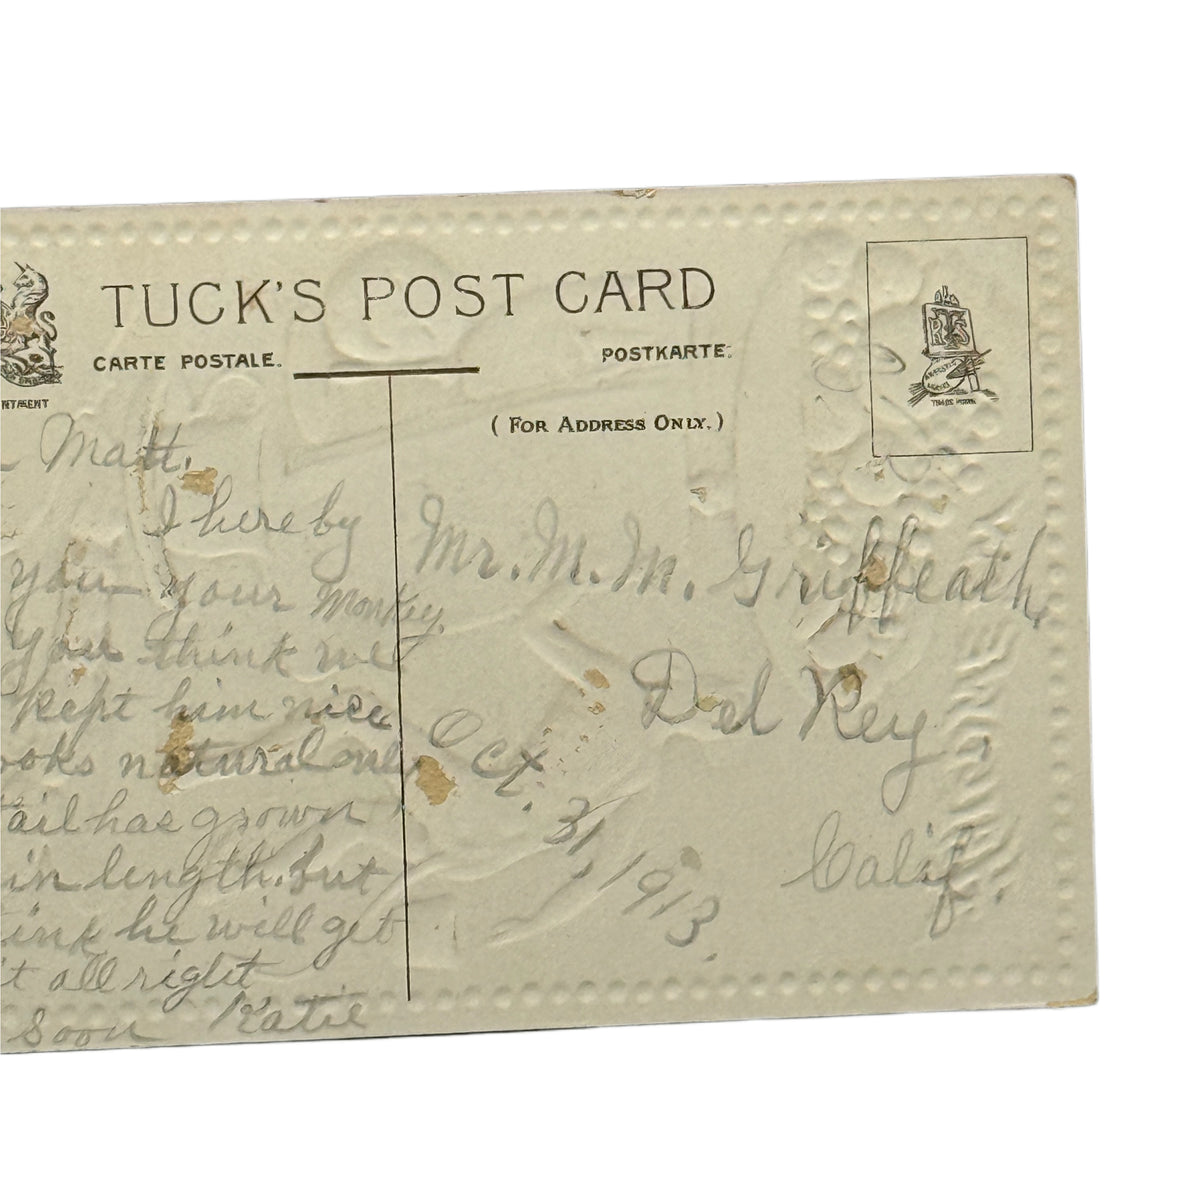 TUCK'S POST CARD
CARTE POSTALE.
POSTKARTE.
NTMENT
(FOR ADDRESS ONLY.)
Matt.
I hereby
you your monkey.
you think we
kept him nice
ooks natural only
tail has grown
in length. but
ink he will get
it all right
soon Katie
Mr. M. M. Griffeath,
Del Rey
Calif.
Oct. 31, 1913.
R T S